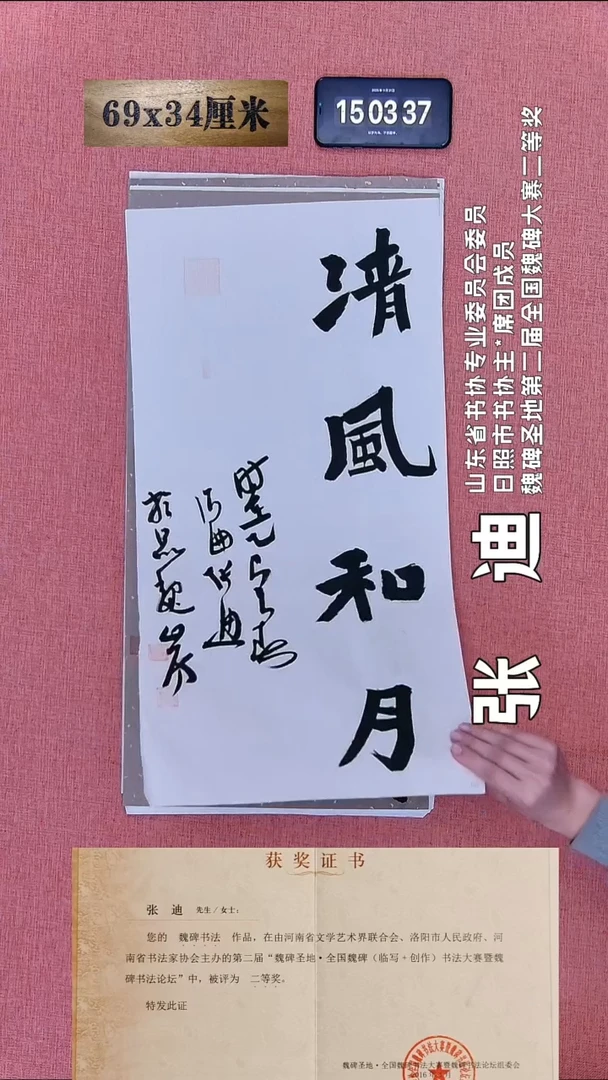 69x34厘米
15 03 37
清風和月
山东省书协专业委员会委员
日照市书协主*席团成员
魏碑圣地第二届全国魏碑大赛二等奖
张 迪
获奖证书
张 迪 先生／女士：
您的 魏碑书法 作品，在由河南省文学艺术界联合会、洛阳市人民政府、河
南省书法家协会主办的第二届“魏碑圣地·全国魏碑（临写+创作）书法大赛暨魏
碑书法论坛”中，被评为 二等奖。
特发此证
魏碑圣地·全国魏碑书法大赛暨魏碑书法论坛组委会